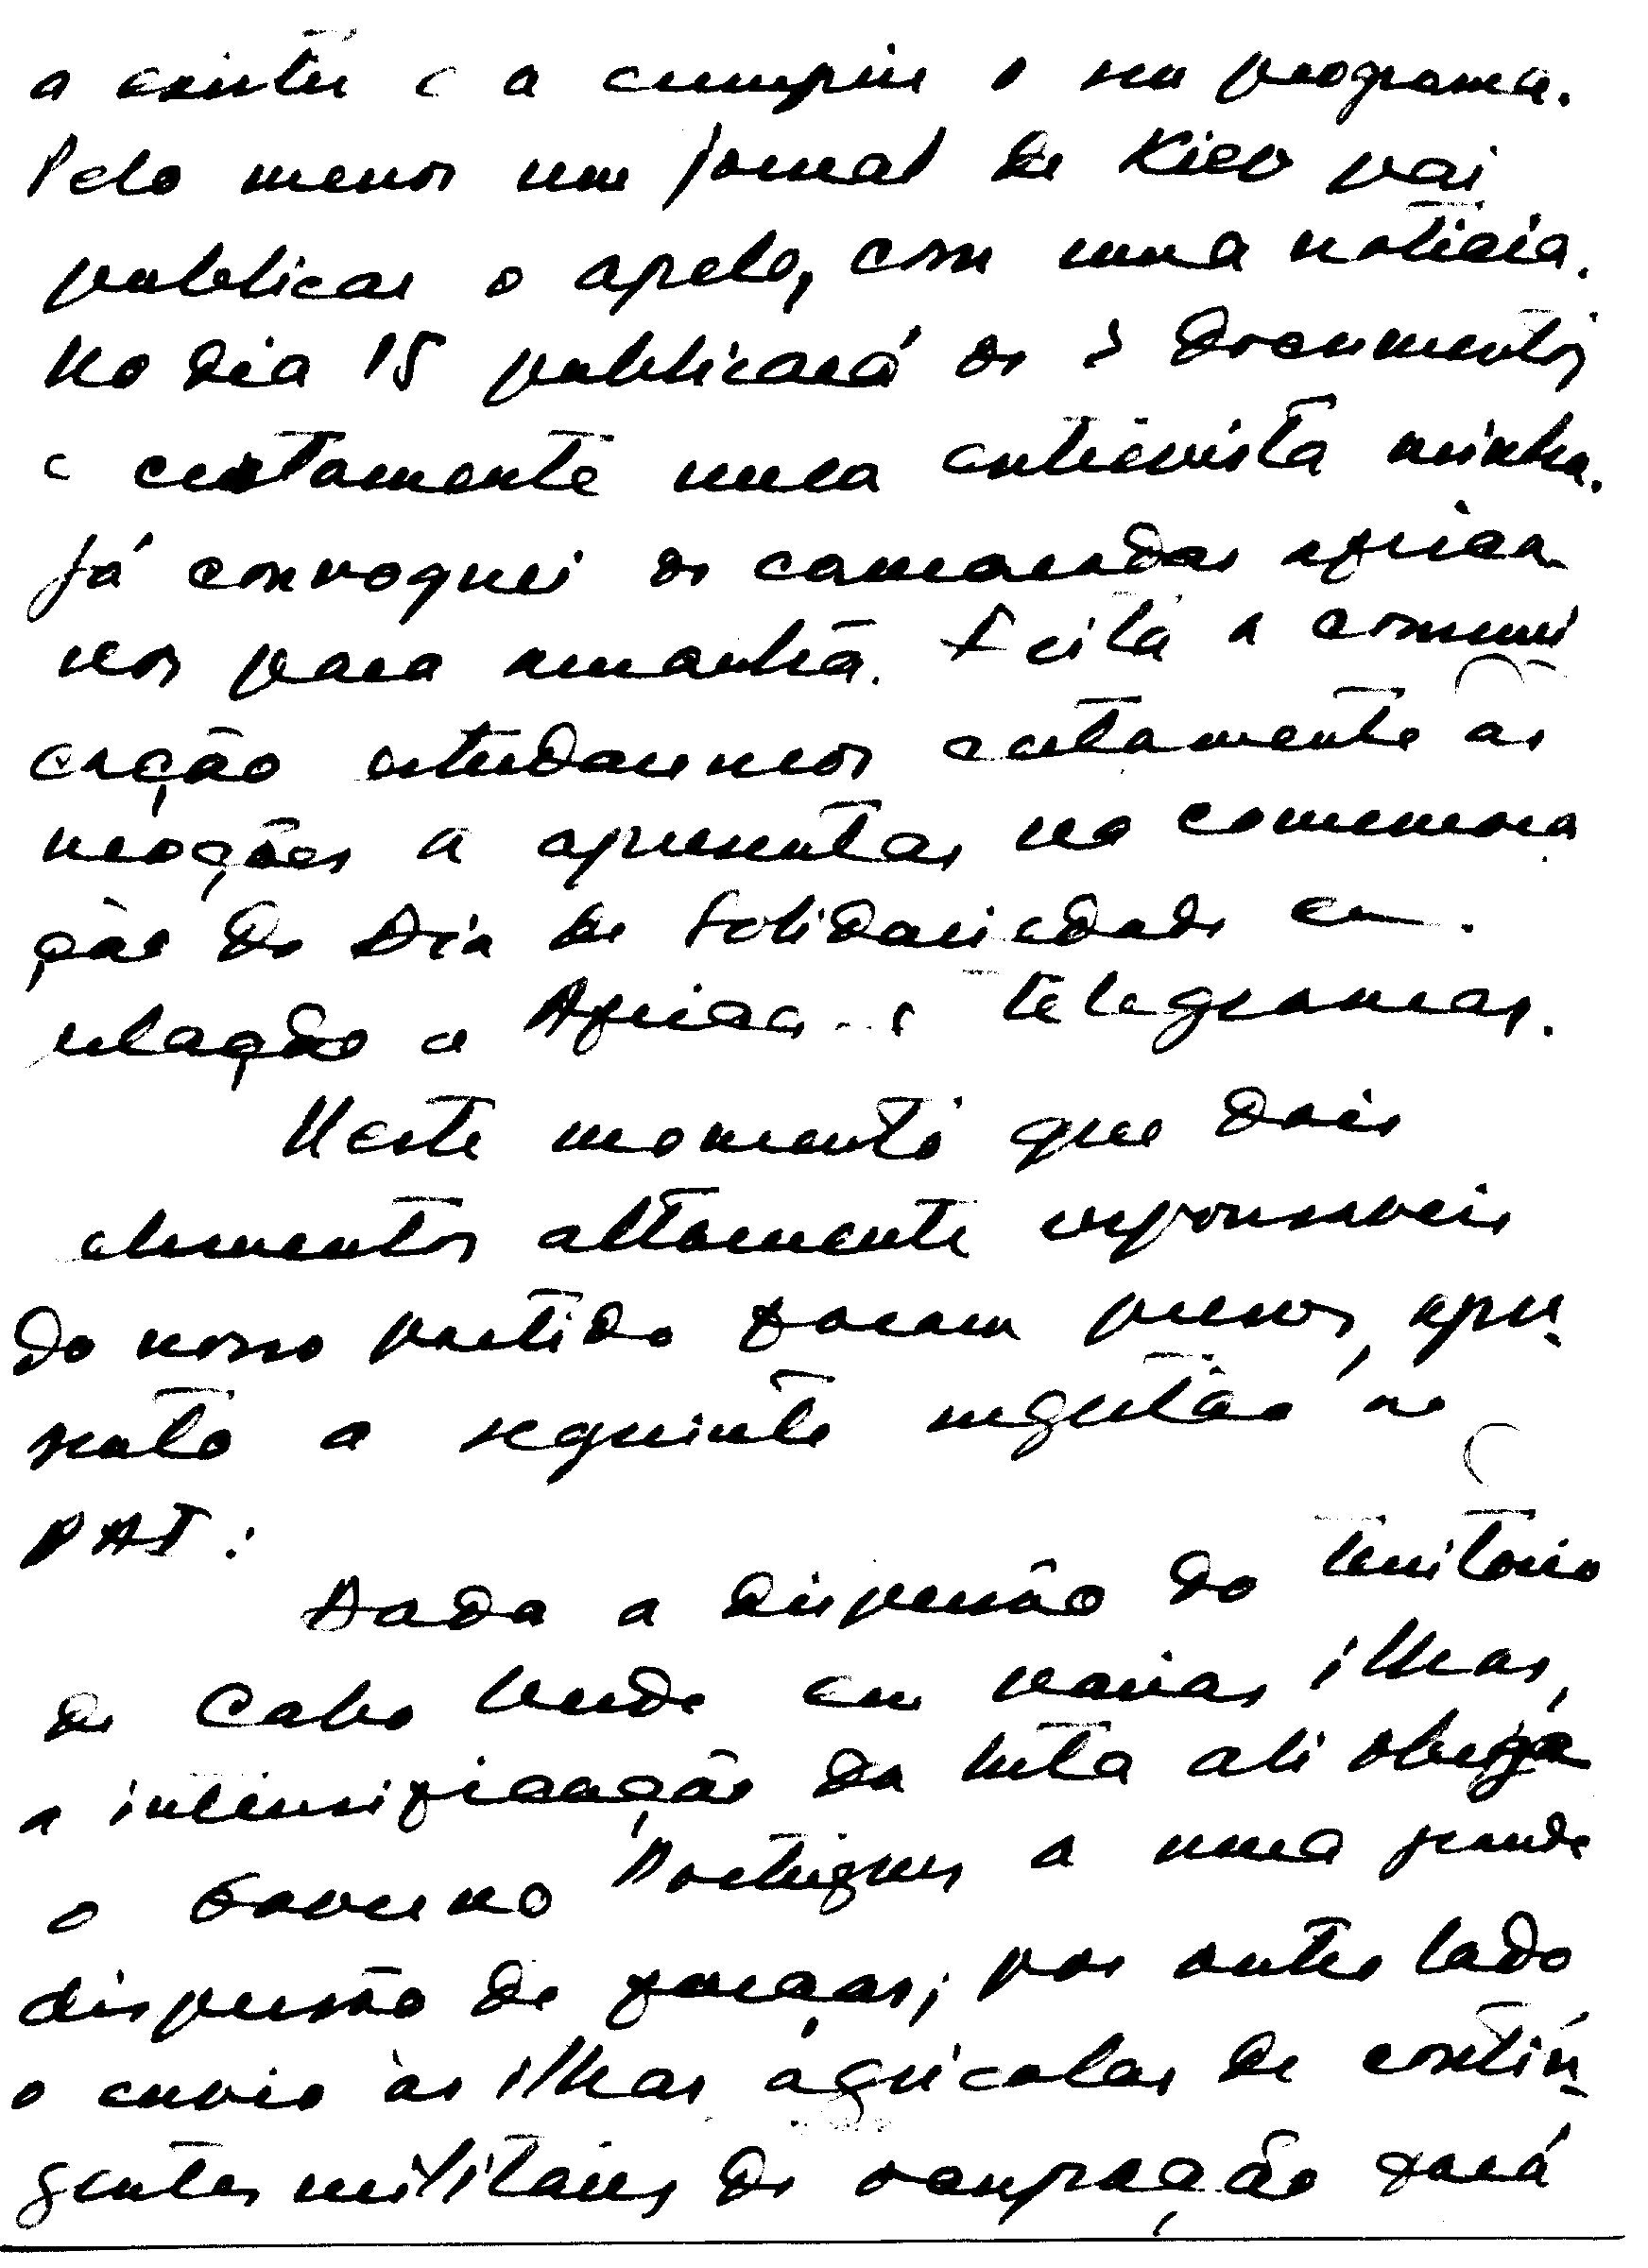 a existir e a cumprir o seu programa.
Pelo menos um jornal de Kiev vai
publicar o apelo, com uma noticia.
No dia 15 publicará os 3 documentos
e certamente uma entrevista minha.
Já convoquei os camaradas africa-
nos para amanhã. Feita a comuni
cação estudaremos certamente as
moções a apresentar na comemora
ção do Dia de Solidariedade em
relação a Africa e telegramas.
Neste momento que dois
elementos altamente responsaveis
do nosso partido foram presos, apre-
sento a seguinte sugestão ao
PAI:
Dada a dispersão do territorio
de Cabo Verde em varias ilhas,
a intensificação da luta ali obriga
o Governo Portugues a uma grande
dispersão de forças; por outro lado
o envio às ilhas agricolas de contin-
gentes militares de ocupação fará